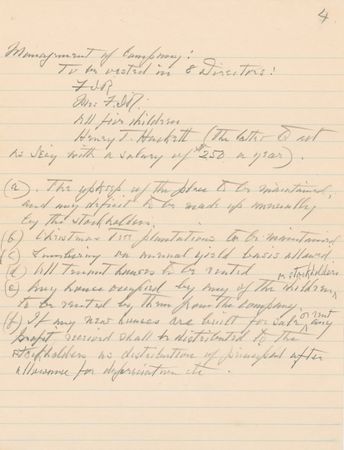 4
Management of Company:
To be vested in 8 Directors:
FDR
Mrs. F.D.R.
All five children
Henry T. Hackett (the latter to act
as Secy with a salary of $250 a year).
(a). The upkeep of the place to be maintained,
and any deficit to be made up annually
by the stockholders.
(b) Christmas Tree plantations to be maintained
(c) Lumbering on annual yield basis allowed.
(d) All tenant houses to be rented
or stockholders
(e) Any house occupied by any of the children
to be rented by them from the company
(f) If any new houses are built for sale or rent any
profit received shall be distributed to the
stockholders as distribution of principal after
allowance for depreciation etc.